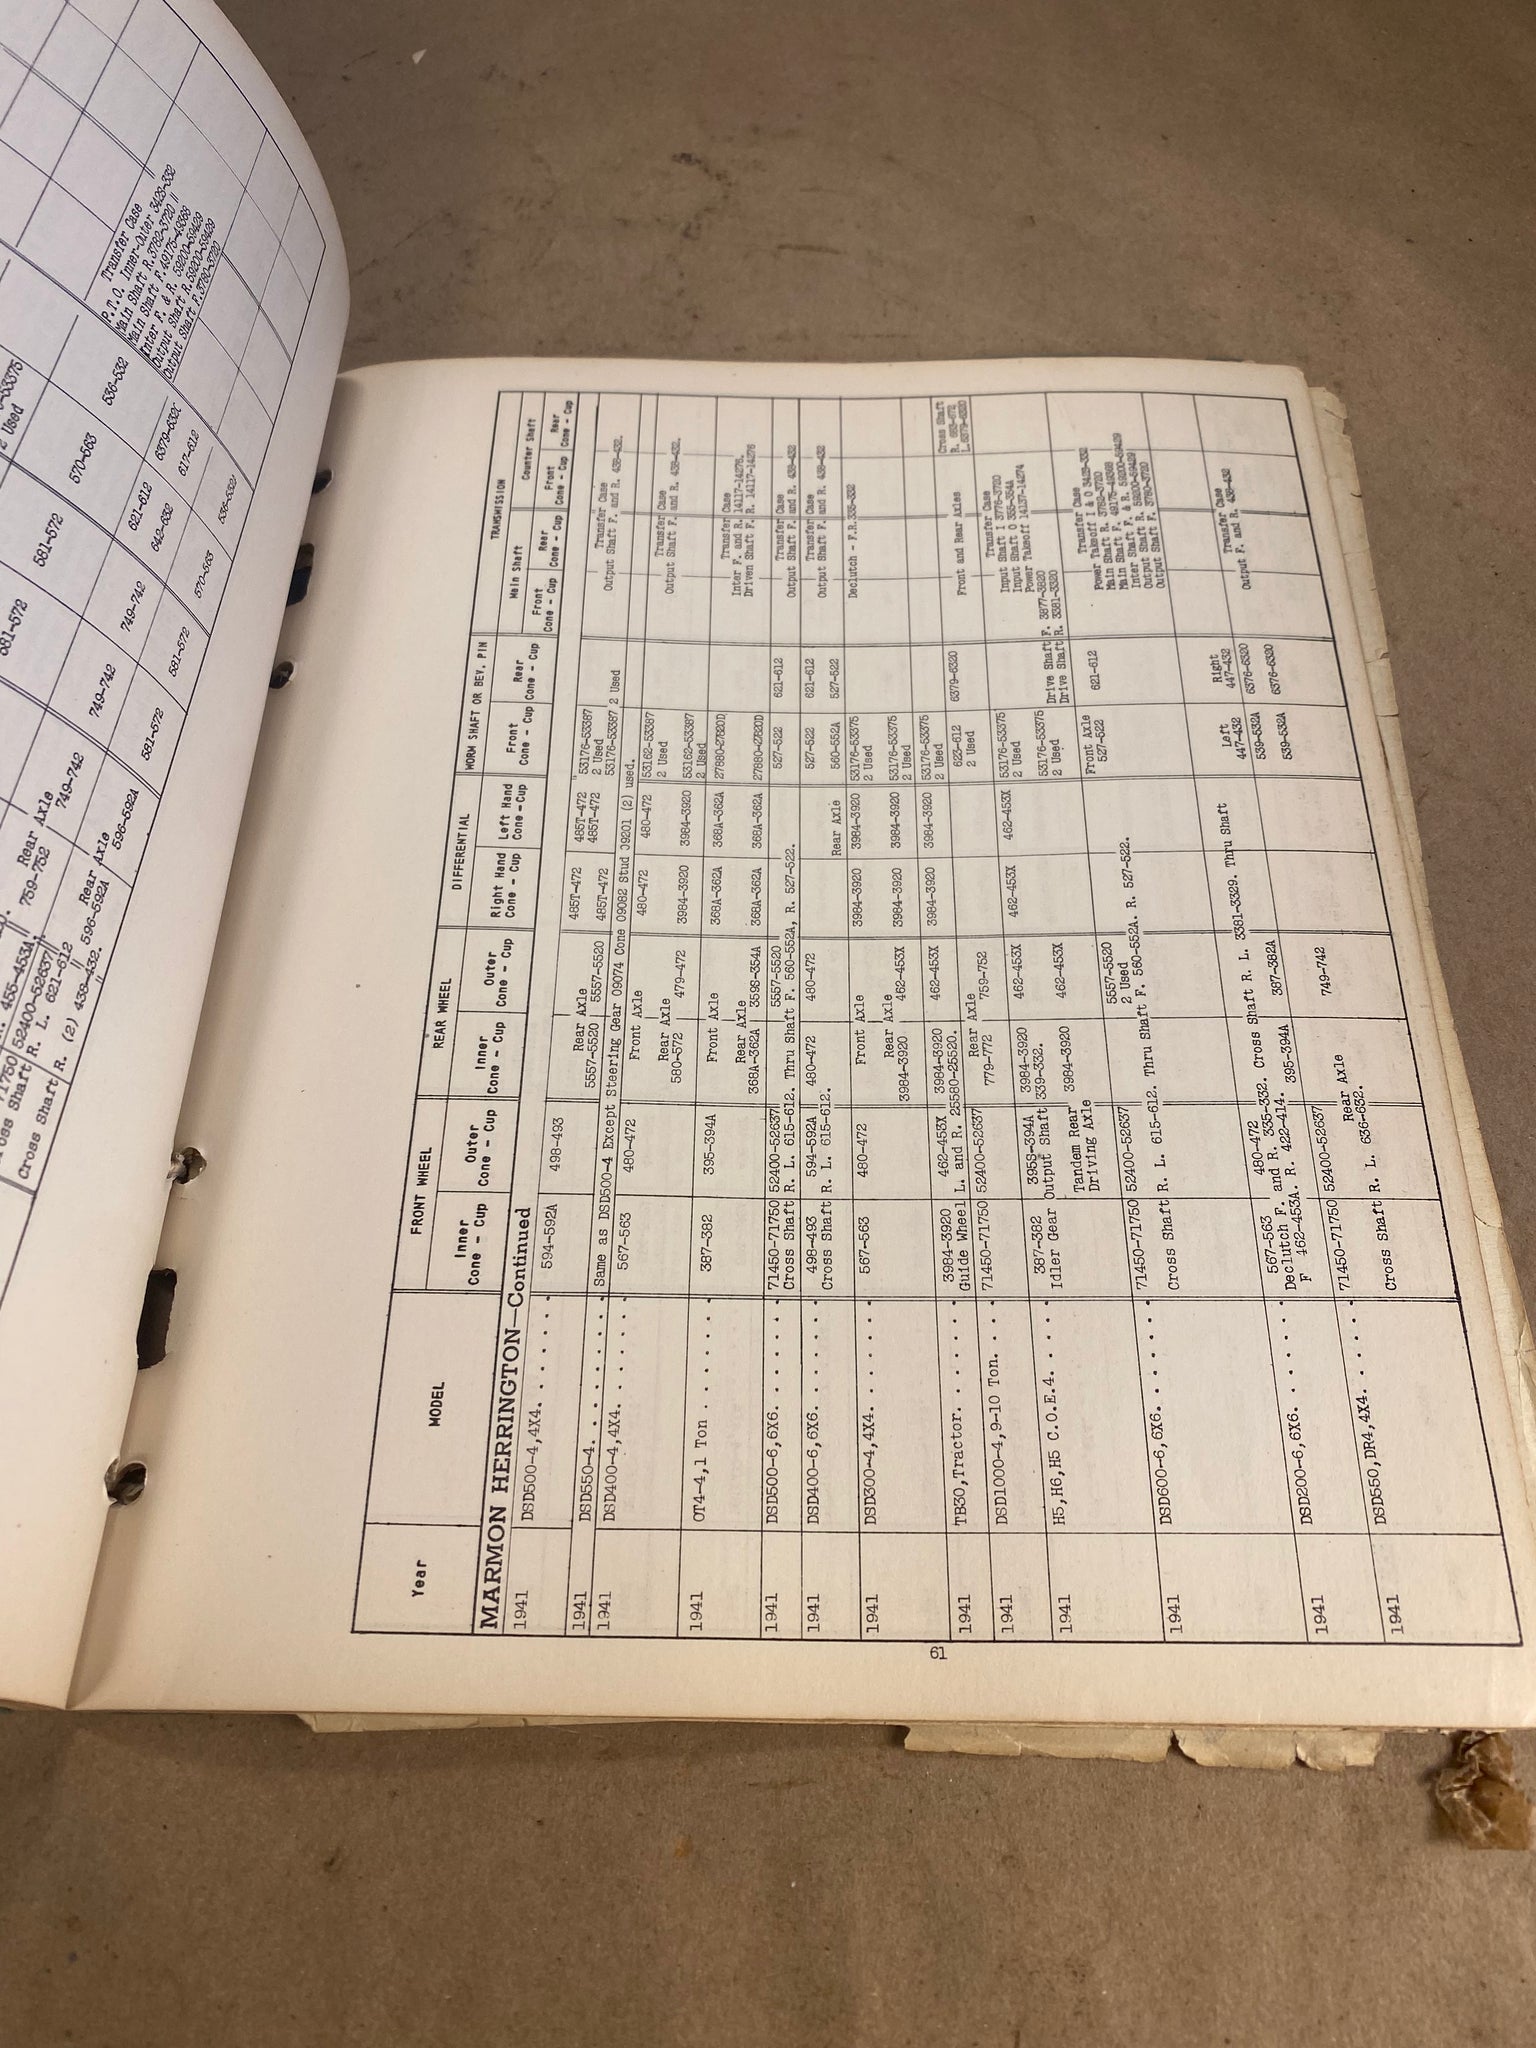 Year MODEL FRONT WHEEL REAR WHEEL DIFFERENTIAL WORM SHAFT OR BEV. PIN TRANSMISSION
Main Shaft Counter Shaft
Inner Cone - Cup Outer Cone - Cup Inner Cone - Cup Outer Cone - Cup Right Hand Cone - Cup Left Hand Cone - Cup Front Cone - Cup Rear Cone - Cup Front Cone - Cup Rear Cone - Cup Front Cone - Cup Rear Cone - Cup
MARMON HERRINGTON—Continued
1941 DSD500-4,4X4. . . . . . . 594-592A 498-493 485T-472 485T-472 53176-53387
2 Used
Rear Axle
5557-5520 5557-5520 485T-472 485T-472 53176-53387 2 Used
Transfer Case
Output Shaft F. and R. 438-432.
1941 DSD550-4. . . . . . . . . Same as DSD500-4 Except Steering Gear 09074 Cone 09082 Stud 09201 (2) used.
1941 DSD400-4,4X4. . . . . . . 567-563 480-472 Front Axle 480-472 480-472 53162-53387
2 Used
Rear Axle
580-572 479-472 3984-3920 3984-3920 53162-53387
2 Used
Transfer Case
Output Shaft F. and R. 438-432.
1941 OT4-4,1 Ton . . . . . . . 387-382 395-394A Front Axle 368A-362A 368A-362A 27880-27820D
Rear Axle
368A-362A 359S-354A 368A-362A 368A-362A 27880-27820D
Transfer Case
Inter F. and R. 14117-14276.
Driven Shaft F. R. 14117-14276
1941 DSD500-6,6X6. . . . . . . 71450-71750 52400-52637 5557-5520 527-522 621-612
Cross Shaft R. L. 615-612. Thru Shaft F. 560-552A, R. 527-522.
Transfer Case
Output Shaft F. and R. 438-432
1941 DSD400-6,6X6. . . . . . . 498-493 594-592A 480-472 480-472 527-522 621-612
Cross Shaft R. L. 615-612. Rear Axle 560-552A 527-522
Transfer Case
Output Shaft F. and R. 438-432
1941 DSD300-4,4X4. . . . . . . 567-563 480-472 Front Axle 3984-3920 3984-3920 53176-53375
2 Used
Declutch - F.R. 335-332
Rear Axle
3984-3920 462-453X 3984-3920 3984-3920 53176-53375
2 Used
1941 TB30,Tractor. . . . . . . 3984-3920 462-453X 3984-3920 462-453X 3984-3920 3984-3920 53176-53375
2 Used
Guide Wheel L. and R. 25580-25520.
1941 DSD1000-4,9-10 Ton. . . 71450-71750 52400-52637 Rear Axle
779-772 759-752 623-612
2 Used 6379-6320
Front and Rear Axles
Cross Shaft
R. 683-672
L. 6379-6320
1941 H5,H6,H5 C.O.E.4. . . . . 387-382 395S-394A 3984-3920 462-453X 462-453X 462-453X 53176-53375
2 Used
Idler Gear Output Shaft 339-332.
Tandem Rear
Driving Axle
3984-3920 462-453X 53176-53375
2 Used
Drive Shaft F. 3877-3820
Drive Shaft R. 3381-3320
Transfer Case
Input Shaft I 3776-3720
Input Shaft O 355-354A
Power Takeoff 14137-14274
1941 DSD600-6,6X6. . . . . . . 71450-71750 52400-52637 5557-5520
2 Used
Front Axle
527-522 621-612
Cross Shaft R. L. 615-612. Thru Shaft F. 560-552A. R. 527-522.
Transfer Case
Power Takeoff I & O 3425-332
Main Shaft R. 3782-3720
Main Shaft F. 49175-49368
Inter Shaft F. & R. 59200-59429
Output Shaft R. 59200-59429
Output Shaft F. 3780-3720
1941 DSD200-6,6X6. . . . . . . 567-563 480-472 395-394A 387-382A
Declutch F. and R. 335-332. Cross Shaft R. L. 3381-3329. Thru Shaft
F 462-453A. R. 422-414.
Left
447-432
Right
447-432
539-532A 6376-6320
539-532A 6376-6320
Transfer Case
Output F. and R. 438-432
1941 DSD550,DR4,4X4. . . . . 71450-71750 52400-52637 749-742
Rear Axle
Cross Shaft R. L. 636-632.
61
Transfer Case
P.T.O. Inner-Outer 3429-332
Main Shaft R. 3782-3720
Main Shaft F. 49175-49368
Inter F. & R. 59200-59429
Output Shaft R. 59200-59429
Output Shaft F. 3780-3720
2 Used
570-563
536-532
581-572
621-612
6379-6320
642-632
617-612
581-572
749-742
749-742
570-563
581-572
581-572
749-742
Rear Axle
759-752
596-592A
Rear Axle
596-592A
455-453A.
52400-52637
R. L. 621-612
Cross Shaft R. (2) 438-432.